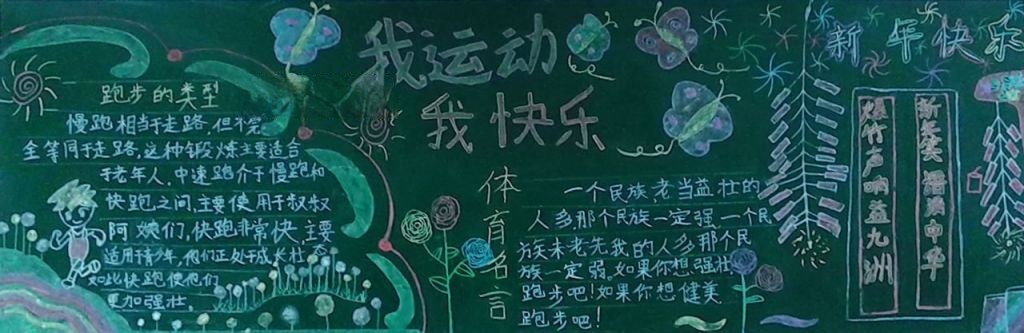 跑步的类型
慢跑相当于走路,但不完
全等同于走路,这种锻炼主要适合
于老年人,中速跑介于慢跑和
快跑之间,主要使用于叔叔
阿姨们,快跑非常快,主要
适用于青少年,他们正处于成长壮
如此快跑使他们
更加强壮.
我运动
我快乐
体育名言
一个民族,老当益壮的
人多那个民族一定强一个民
族未老先我的人多那个民
族一定弱.如果你想强壮,
跑步吧!如果你想健美
跑步吧!
新年快乐
爆竹声响益九洲
新年笑语满中华